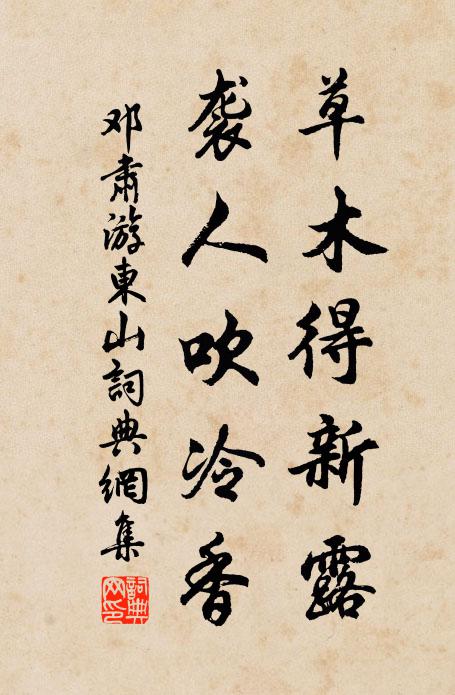 草木得新露
袭人吹冷香
邓肃游東山詞典網集
詞典网印